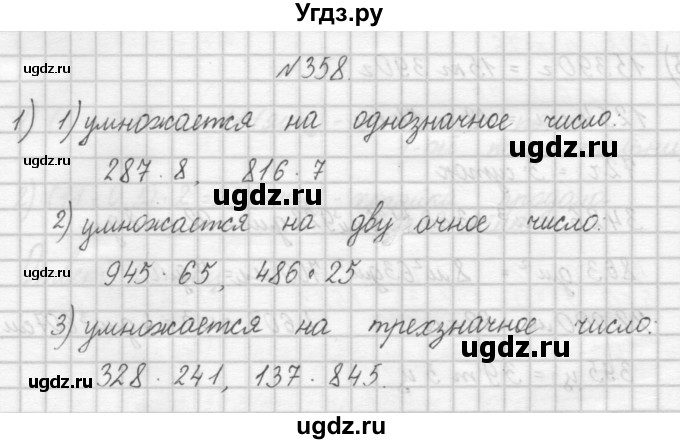 Угдз.ру
№358.
1) 1) умножается на однозначное число:
287 · 8, 816 · 7
2) умножается на дву очное число.
945 · 65, 486 · 25
3) умножается на трехзначное число:
328 · 241, 137 · 845.
ugdz.ru
ugdz.ru
ugdz.ru
ugdz.ru
ugdz.ru
ugdz.ru
ugdz.ru
ugdz.ru
ugdz.ru
ugdz.ru